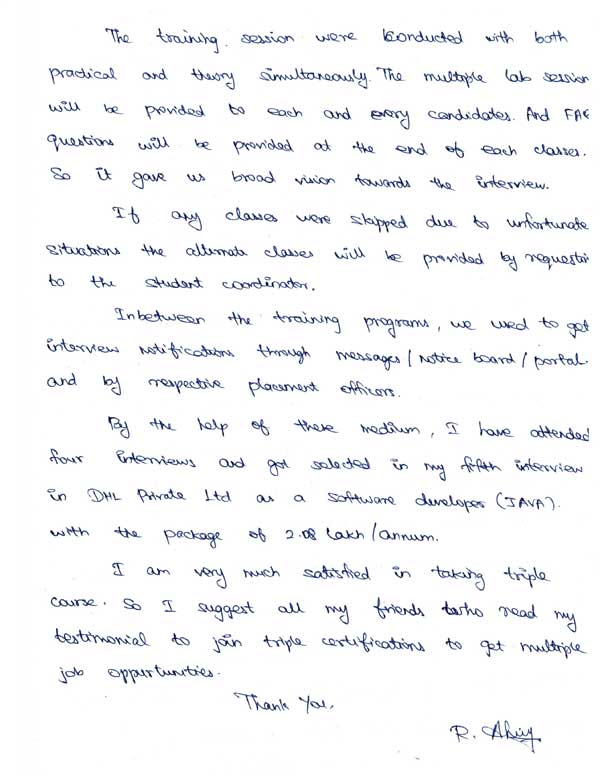 The training session were conducted with both
practical and theory simultaneously. The multiple lab session
will be provided to each and every candidates. And FAQ
questions will be provided at the end of each classes.
So it gave us broad vision towards the interview.
If any classes were skipped due to unfortunate
situations the alternate classes will be provided by
to the student coordinator.
Inbetween the training programs, we used to get
interview notifications through messages / notice board / portal
and by respective placement officers.
By the help of these medium, I have attended
four interviews and got selected in my fifth interview
in DHL Private Ltd as a software developer (JAVA).
with the package of 2.08 Lakh / annum.
I am very much satisfied in taking triple
course. So I suggest all my friends who read my
testimonial to join triple certifications to get multiple
job oppurtunities.
Thank You.
R.